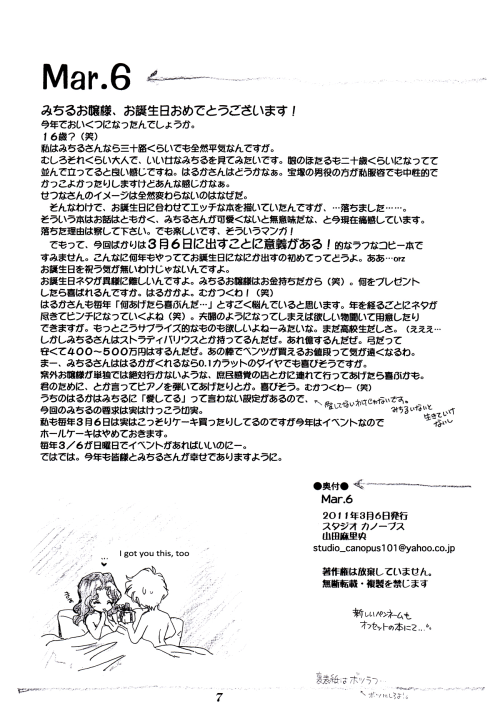 Mar.6
みちるお嬢様、お誕生日おめでとうございます！
今年でおいくつになったんでしょうか。
１６歳？（笑）
私はみちるさんなら三十路くらいでも全然平気なんですが。
むしろそれくらい大人で、いいけなみちるを見てみたいです。暇のほたるも二十歳くらいになってて
並んで立ってると良い感じですね。はるかさんはどうかなぁ。宝塚の男役の方が私服でも中性的で
かっこよかったりしますけどあんな感じかなぁ。
せつなさんのイメージは全然変わらないのはなぜだ。
そんなわけで、お誕生日に合わせてエッチな本を描いていたんですが、…落ちました……。
そういう本はお話はともかく、みちるさんが可愛くないと無意味だな、と今現在痛感しています。
落ちた理由は察して下さい。でも楽しいです、そういうマンガ！
でもって、今回ばかりは３月６日に出すことに意義がある！的なラフなコピー本で
すみません。こんなに何年もやっててお誕生日になにか出すの初めてってどうよ。ああ…orz
お誕生日を祝う気が無いわけじゃないんですよ。
お誕生日ネタが異様に難しいんですよ。みちるお嬢様はお金持ちだから（笑）。何をプレゼント
したら喜ばれるんですか。はるかがよ。むかつくわ！（笑）
はるかさんも毎年「何あげたら喜ぶんだ…」とすごく悩んでいると思います。年を経るごとにネタが
尽きてピンチになっていくよね（笑）。夫婦のようになってしまえば欲しい物聞いて用意したり
できますが。もっとこうサプライズ的なものも欲しいよねーみたいな。まだ高校生だしさ。（ええぇ…
しかしみちるさんはストラディバリウスとか持ってるんだぜ。あれ億するんだぜ。弓だって
安くて４００～５００万円はするんだぜ。あの棒でベンツが買えるお値段って気が遠くなるわ。
まー、みちるさんははるかがくれるなら0.1カラットのダイヤでも喜びそうですが。
案外お嬢様が単独では絶対行かないような、庶民感覚の店とかに連れて行ってあげたら喜ぶかも。
君のために、とか言ってピアノを弾いてあげたりとか。喜びそう。むかつくわー（笑）
うちのはるかはみちるに「愛してる」って言わない設定があるので、
愛してないわけじゃないです。
みちるいないと
生きていけ
ないし
今回のみちるの要求は実はけっこう切実。
私も毎年３月６日は実はこっそりケーキ買ったりしてるのですが今年はイベントなので
ホールケーキはやめておきます。
毎年３／６が日曜日でイベントがあればいいのにー。
ではでは。今年も皆様とみちるさんが幸せでありますように。
●奥付●
Mar.6
２０１１年３月６日発行
スタジオ カノープス
山田麻里央
studio_canopus101@yahoo.co.jp
著作権は放棄していません。
無断転載・複製を禁じます
新しいペンネームも
オフセットの本にて…。
I got you this, too
裏表紙はボツラフ…
7